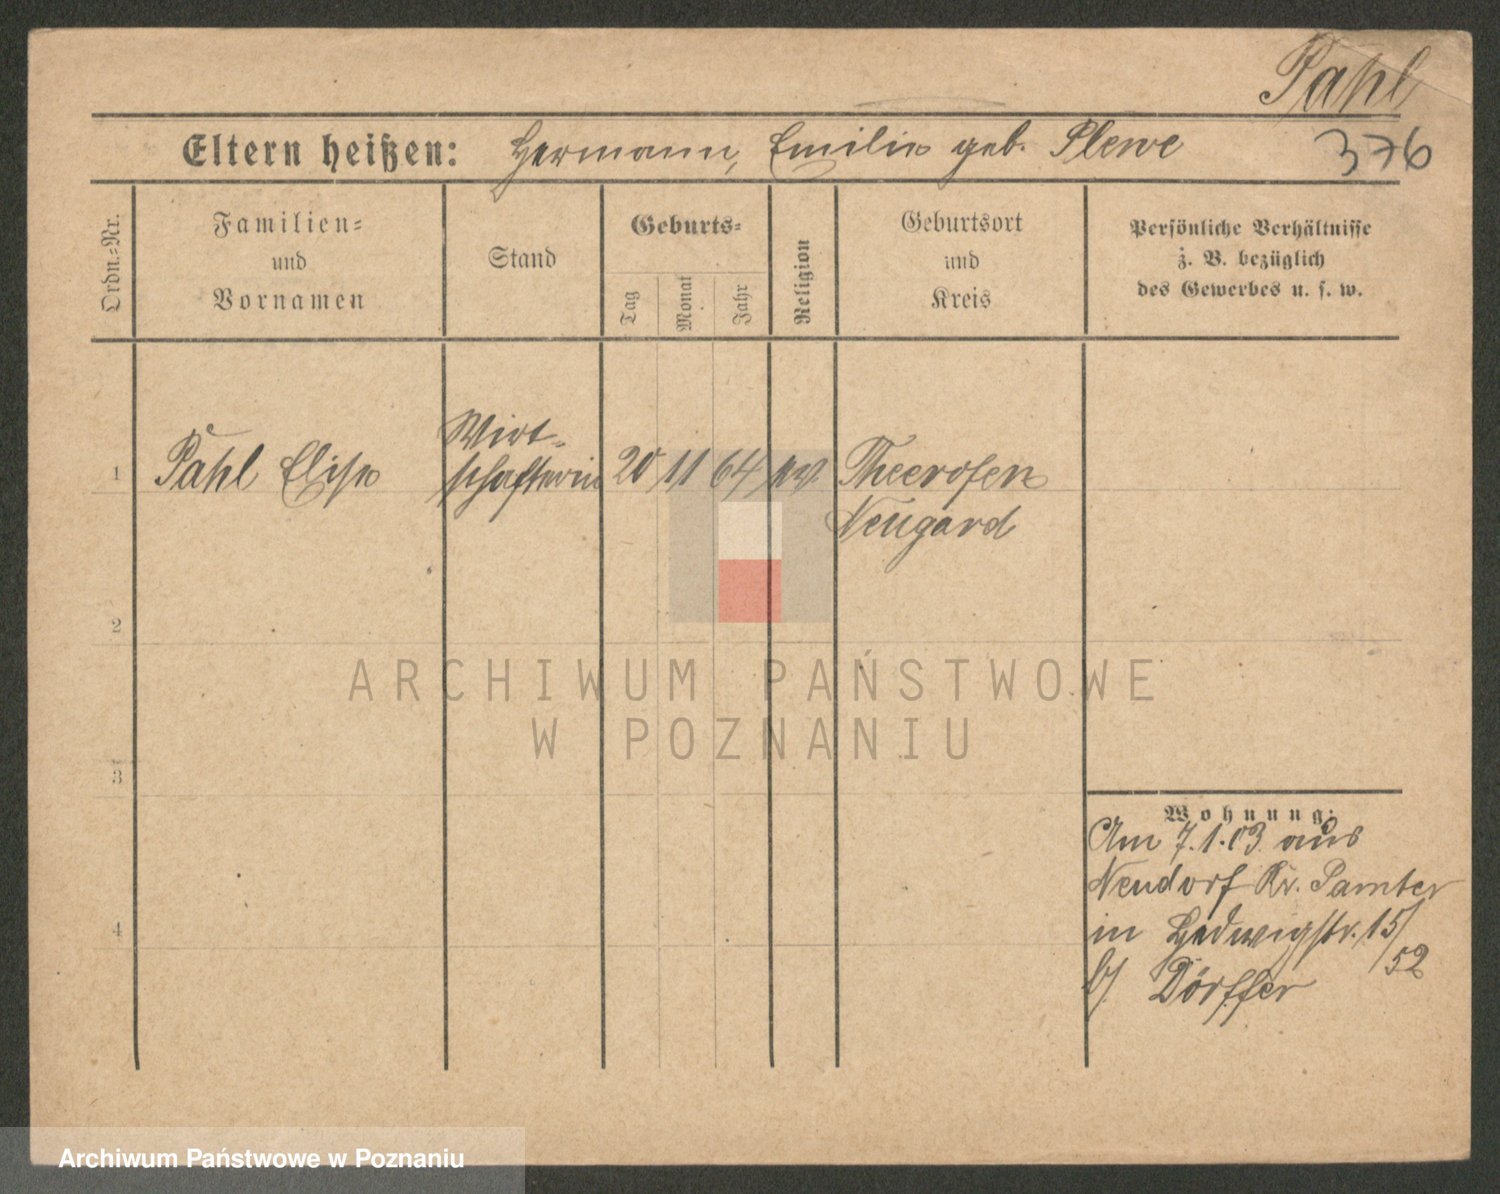 Pahl
Eltern heißen: Hermann, Emilie geb. Plewe
376
Ordn.-Nr.
Familien-
und
Vornamen
Stand
Geburts-
Tag
Monat
Jahr
Religion
Geburtsort
und
Kreis
Persönliche Verhältnisse
z. B. bezüglich
des Gewerbes u. s. w.
1
Pahl Elise
Wirt-
schafterin
20 11 64 ev.
Theerofen
Neugard
2
3
4
ARCHIWUM PAŃSTWOWE
W POZNANIU
Wohnung:
Am 7.1.03 aus
Neudorf Kr. Samter
in Hedwigstr. 15/
52
b/ Dörffer
Archiwum Państwowe w Poznaniu